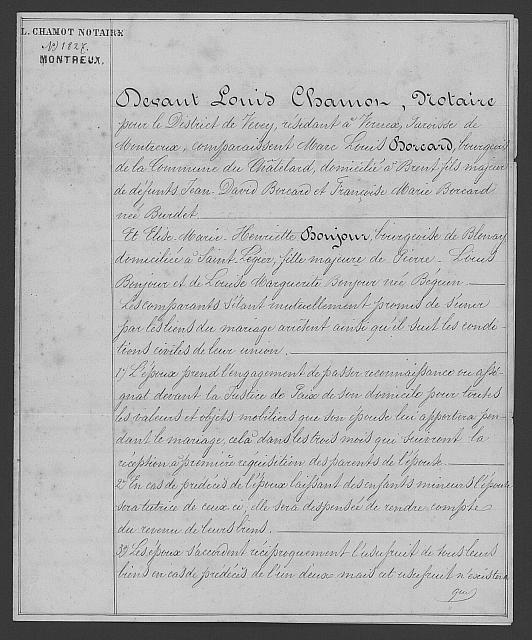 L. CHAMOT NOTAIRE
No 1827.
MONTREUX.
Devant Louis Chamot, Notaire
pour le District de Vevey, résidant à Vernex, Paroisse de
Montreux, comparaissent Marc Louis Borcard, bourgeois
de la Commune du Châtelard, domicilié à Brent fils majeur
de défunts Jean-David Borcard et Françoise Marie Borcard
née Burdet.
Et Elise-Marie-Henriette Bonjour, bourgeoise de Blonay
domiciliée à Saint-Légier, fille majeure de Pierre-Louis
Bonjour et de Louise Marguerite Bonjour née Béguin.
Les comparants s'étant mutuellement promis de s'unir
par les liens du mariage arrêtent ainsi qu'il suit les condi-
tions civiles de leur union.
1o L'époux prend l'engagement de passer reconnaissance ou assi-
gnat devant la Justice de Paix de son domicile pour toutes
les valeurs et objets mobiliers que son épouse lui apportera pen-
dant le mariage, cela dans les trois mois que suivront la
réception à première réquisition des parents de l'épouse.
2o En cas de prédécès de l'époux laissant des enfants mineurs l'épouse
sera tutrice de ceux ci, elle sera dispensée de rendre compte
du revenu de leurs biens.
3o Les époux s'accordent réciproquement l'usufruit de tous leurs
biens en cas de prédécès de l'un d'eux mais cet usufruit n'existera
que